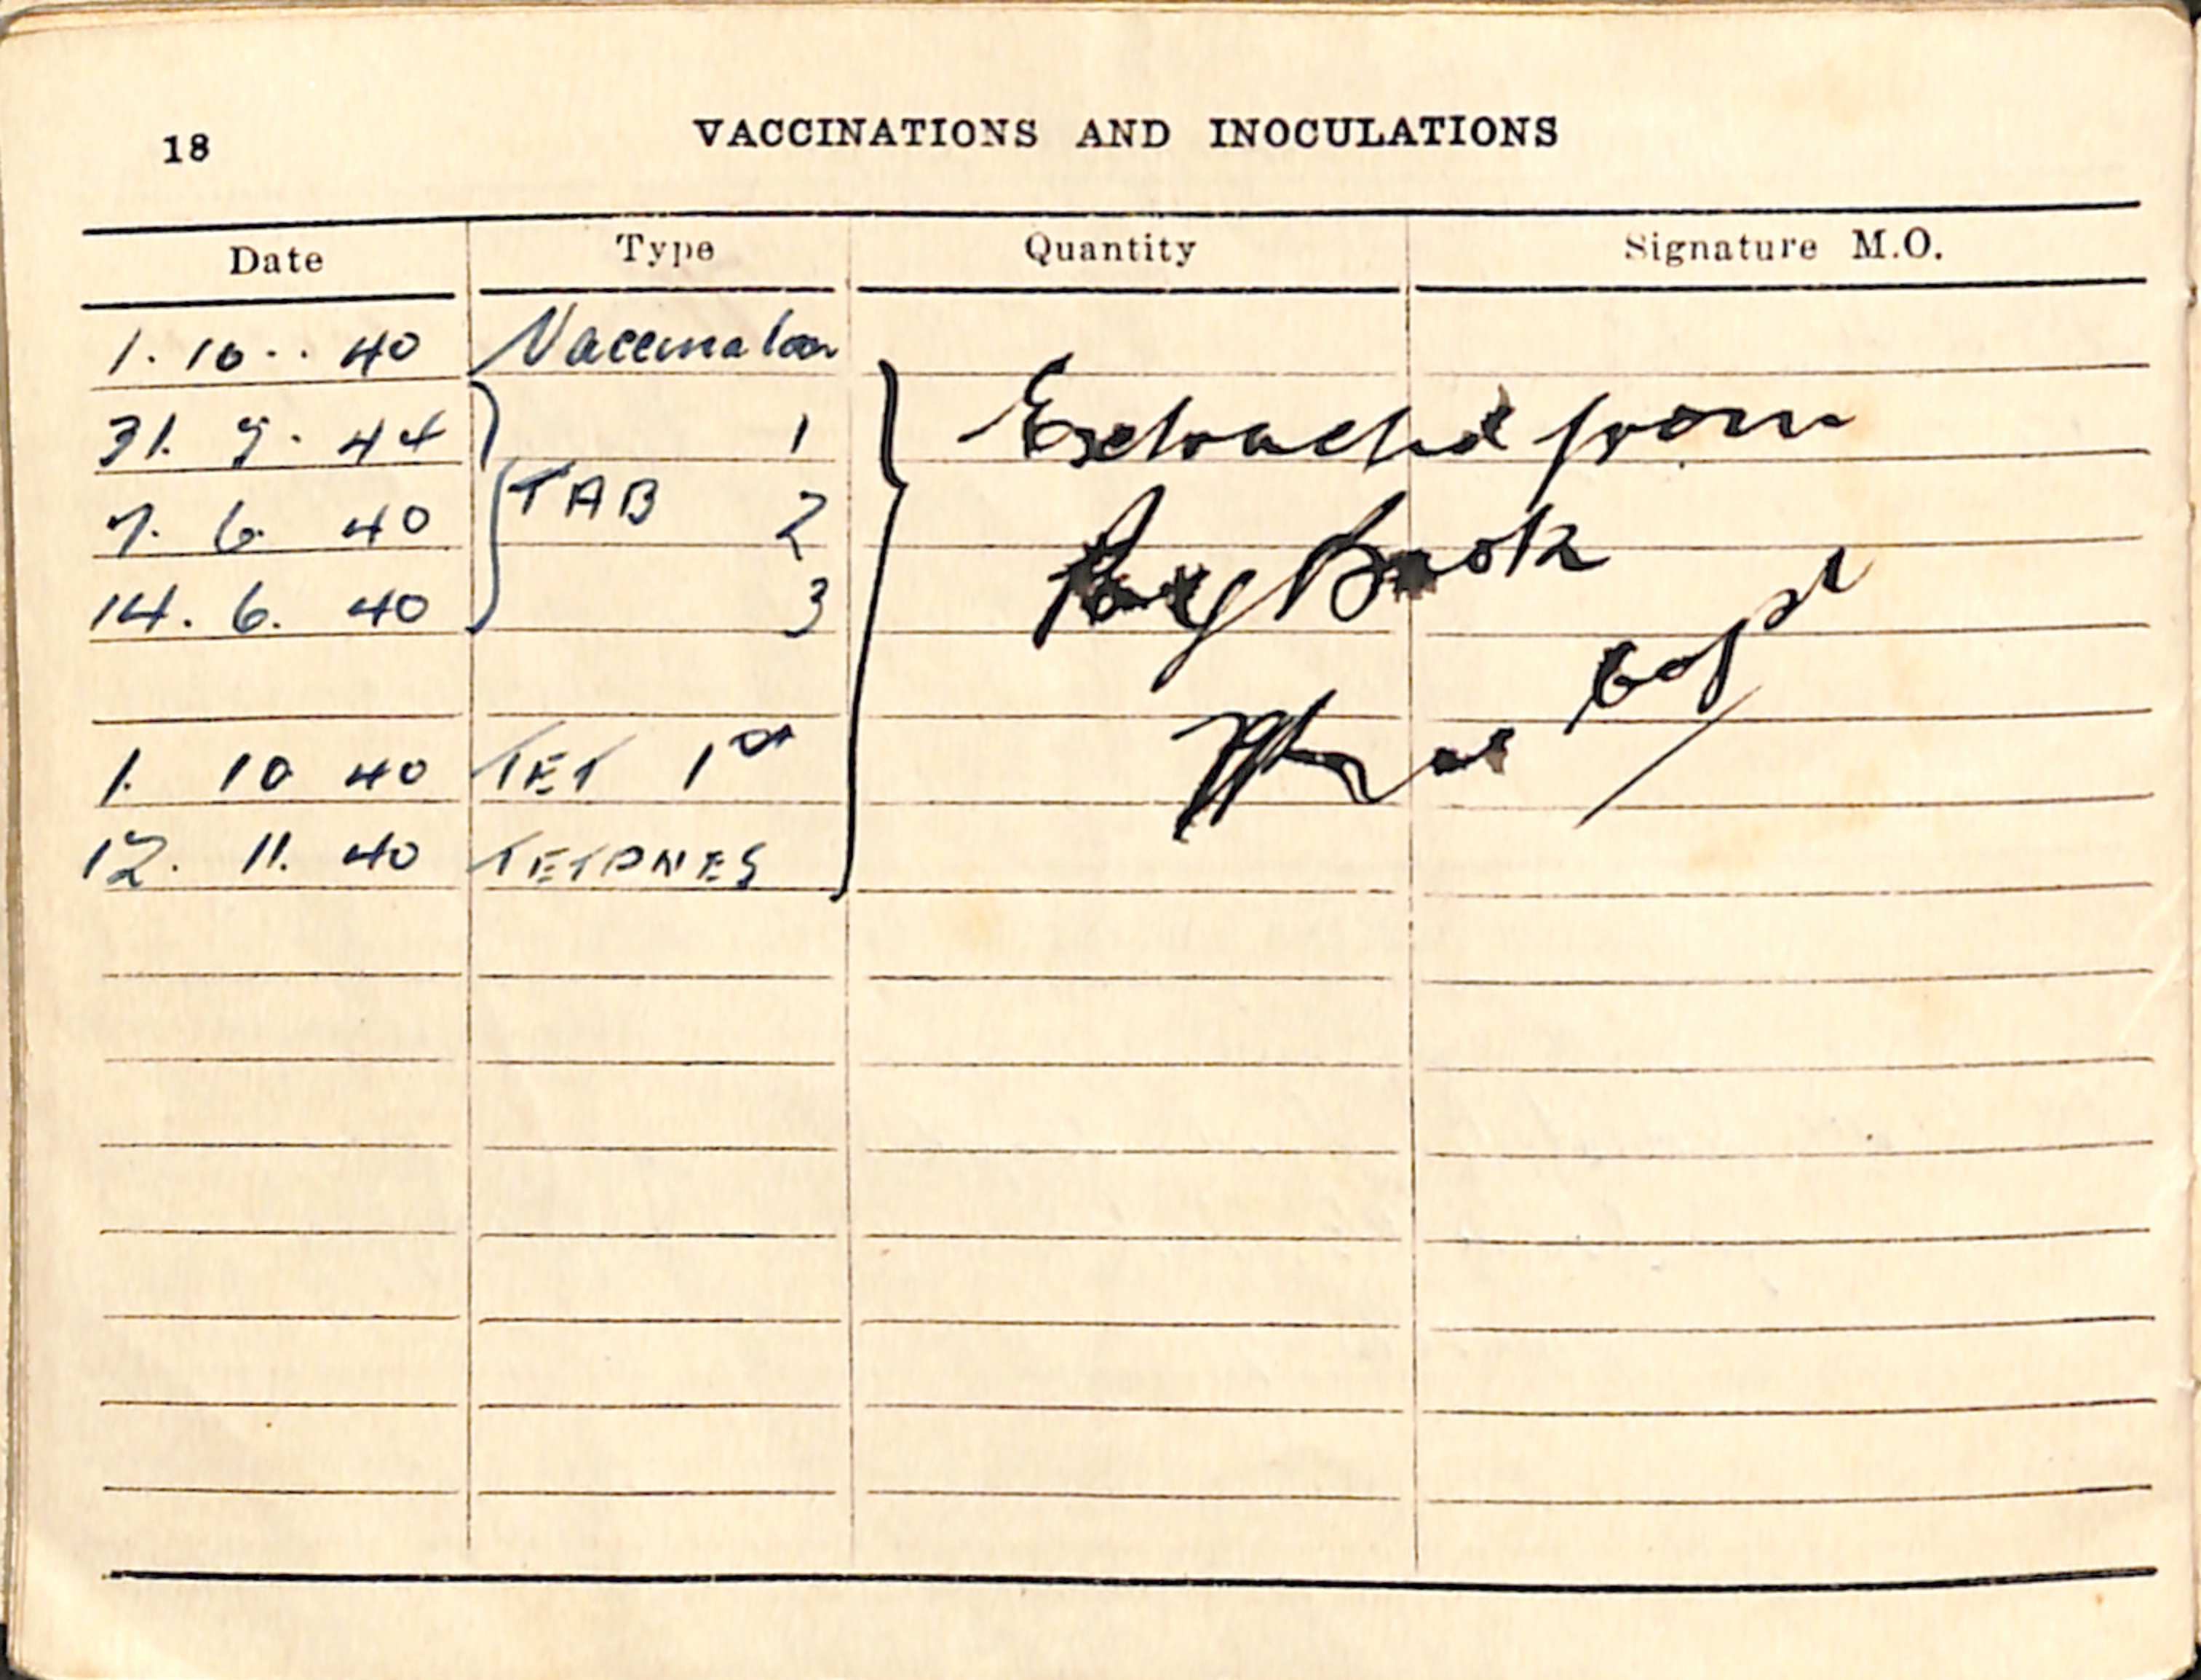 18
VACCINATIONS AND INOCULATIONS
Date Type Quantity Signature M.O.
1. 10. . 40 Vaccination
31. 5. 44 1 Extracted from
TAB
7. 6. 40 2 Pay Book
14. 6. 40 3
Capt
1. 10 40 TET 1st
12. 11. 40 TETANES